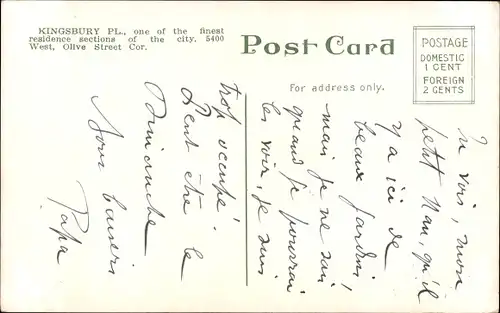 KINGSBURY PL., one of the finest
residence sections of the city, 5400
West, Olive Street Cor.
Post Card
For address only.
POSTAGE
DOMESTIC
1 CENT
FOREIGN
2 CENTS
Tu vois, mon
petit Nau, qu'il
y a ici de
beaux jardins,
mais je ne sais
quand je pourrai
les voir, je suis
trop occupé.
Peut être le
Dimanche
Bons baisers
Papa